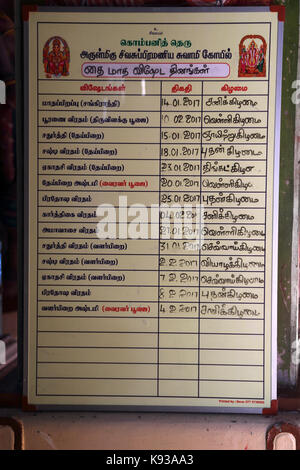 உ
கொம்பனித் தெரு
அருள்மிகு சிவசுப்பிரமணிய சுவாமி கோயில்
தை மாத விஷேட தினங்கள்
விஷேடங்கள் திகதி கிழமை
மாதப்பிறப்பு (சங்கிராந்தி) 14.01.2017 சனிக்கிழமை
பூரணை விரதம் (திருவிளக்கு பூஜை) 10.02.2017 வெள்ளிக்கிழமை
சதுர்த்தி விரதம் (தேய்பிறை) 15.01.2017 ஞாயிற்றுகிழமை
சஷ்டி விரதம் (தேய்பிறை) 18.01.2017 புதன்கிழமை
ஏகாதசி விரதம் (தேய்பிறை) 23.01.2017 திங்கட்கிழமை
தேய்பிறை அஷ்டமி (வைரவர் பூஜை) 20.01.2017 வெள்ளிகிழமை
பிரதோஷ விரதம் 25.01.2017 புதன்கிழமை
கார்த்திகை விரதம் 04.02.201 சனிக்கிழமை
அமாவாசை விரதம் 27.01.2017 வெள்ளிகிழமை
சதுர்த்தி விரதம் (வளர்பிறை) 31.01.2017 செவ்வாய்கிழமை
சஷ்டி விரதம் (வளர்பிறை) 2.2.2017 வியாழக்கிழமை
ஏகாதசி விரதம் (வளர்பிறை) 7.2.2017 செவ்வாய்கிழமை
பிரதோஷ விரதம் 8.2.2017 புதன்கிழமை
வளர்பிறை அஷ்டமி (வைரவர் பூஜை) 4.2.2017 சனிக்கிழமை